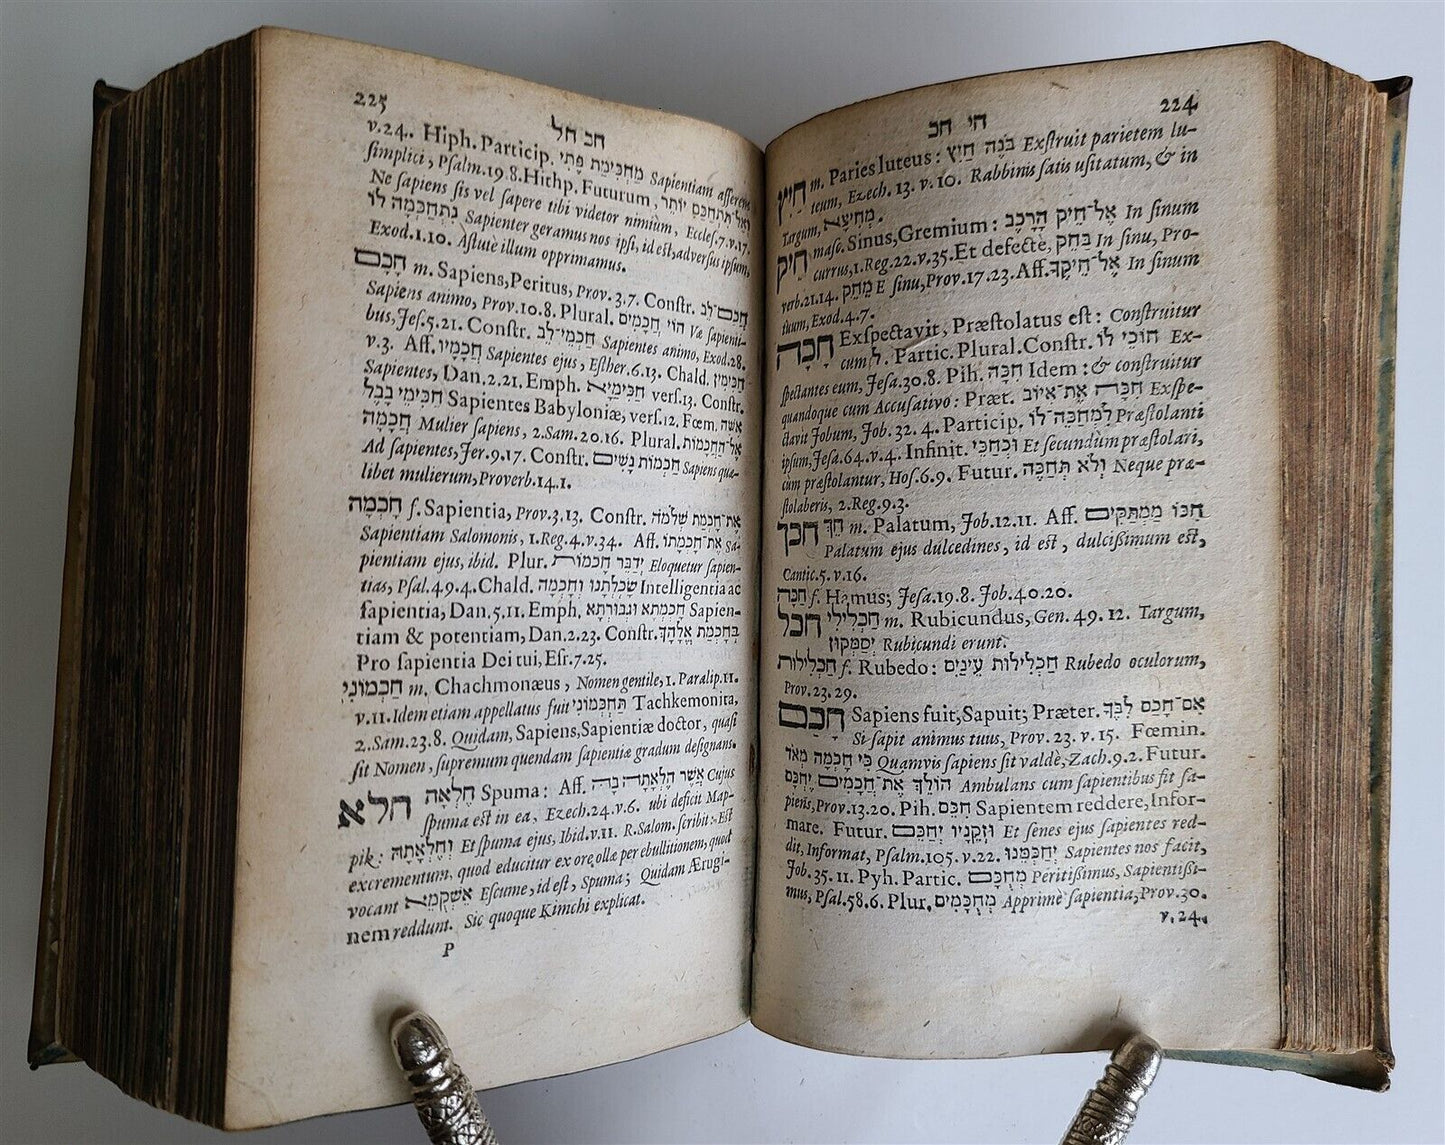 224
חי חכ
חַיִץ m. Paries luteus: בֹּנֶה חַיִץ Exſtruit parietem lu-
teum, Ezech. 13. v. 10. Rabbinis ſatis uſitatum, & in
Targum, מְחִיצָא.
חֵיק maſc. Sinus, Gremium: אֶל־חֵיק הָרֶכֶב In ſinum
currus, 1. Reg. 22. v. 35. Et defectè, בַּחֵק In ſinu, Pro-
verb. 21. 14. מֵחֵק E ſinu, Prov. 17. 23. Aff. אֶל־חֵיקֶךָ In ſinum
tuum, Exod. 4. 7.
חָכָה Exſpectavit, Præſtolatus eſt: Conſtruitur
cum ל. Partic. Plural. Conſtr. חוֹכֵי לוֹ Ex-
ſpectantes eum, Jeſa. 30. 8. Pih. חִכָּה Idem: & conſtruitur
quandoque cum Accuſativo: Præt. חִכָּה אֶת־אִיּוֹב Exſpe-
ctavit Jobum, Job. 32. 4. Particip. לִמְחַכֵּה־לוֹ Præſtolanti
ipſum, Jeſa. 64. v. 4. Infinit. וּכְחַכֵּי Et ſecundùm præſtolari,
cum præſtolantur, Hoſ. 6. 9. Futur. וְלֹא תְּחַכֶּה Neque præ-
ſtolaberis, 2. Reg. 9. 3.
חכך חֵךְ m. Palatum, Job. 12. 11. Aff. חִכּוֹ מַמְתַקִּים
Palatum ejus dulcedines, id eſt, dulciſſimum eſt,
Cantic. 5. v. 16.
חַכָּה f. Hamus; Jeſa. 19. 8. Job. 40. 20.
חכל חַכְלִילִי m. Rubicundus, Gen. 49. 12. Targum,
יְסַמְּקוּן Rubicundi erunt.
חַכְלִילוּת f. Rubedo: חַכְלִילוּת עֵינַיִם Rubedo oculorum,
Prov. 23. 29.
חָכַם Sapiens fuit, Sapuit; Præter. אִם־חָכַם לִבֶּךָ
Si ſapit animus tuus, Prov. 23. v. 15. Fœmin.
כִּי חָכְמָה מְאֹד Quamvis ſapiens ſit valdè, Zach. 9. 2. Futur.
הוֹלֵךְ אֶת־חֲכָמִים יֶחְכָּם Ambulans cum ſapientibus fit ſa-
piens, Prov. 13. 20. Pih. חִכֵּם Sapientem reddere, Infor-
mare. Futur. וּזְקֵנָיו יְחַכֵּם Et ſenes ejus ſapientes red-
dit, Informat, Pſalm. 105. v. 22. יְחַכְּמֵנוּ Sapientes nos facit,
Job. 35. 11. Pyh. Partic. מְחֻכָּם Peritiſſimus, Sapientiſſi-
mus, Pſal. 58. 6. Plur. מְחֻכָּמִים Apprimè ſapientia, Prov. 30.
v. 24.
225
חכ חל
v. 24. Hiph. Particip. מַחְכִּימַת פֶּתִי Sapientiam afferens
ſimplici, Pſalm. 19. 8. Hithp. Futurum, וְאַל־תִּתְחַכַּם יוֹתֵר
Ne ſapiens ſis vel ſapere tibi videtor nimiùm, Eccleſ. 7. v. 17.
נִתְחַכְּמָה לוֹ Sapienter geramus nos ipſi, id eſt, adversus ipſum,
Exod. 1. 10. Aſtutè illum opprimamus.
חָכָם m. Sapiens, Peritus, Prov. 3. 7. Conſtr. חֲכַם־לֵב
Sapiens animo, Prov. 10. 8. Plural. הוֹי חֲכָמִים Væ ſapienti-
bus, Jeſ. 5. 21. Conſtr. חַכְמֵי־לֵב Sapientes animo, Exod. 28.
v. 3. Aff. חֲכָמָיו Sapientes ejus, Eſther. 6. 13. Chald. חַכִּימִין
Sapientes, Dan. 2. 21. Emph. חַכִּימַיָּא verſ. 13. Conſtr.
חַכִּימֵי בָבֶל Sapientes Babyloniæ, verſ. 12. Fœm. אִשָּׁה
חֲכָמָה Mulier ſapiens, 2. Sam. 20. 16. Plural. אֶל־הַחֲכָמוֹת
Ad ſapientes, Jer. 9. 17. Conſtr. חַכְמוֹת נָשִׁים Sapiens quæ-
libet mulierum, Proverb. 14. 1.
חָכְמָה f. Sapientia, Prov. 3. 13. Conſtr. אֶת־חָכְמַת שְׁלֹמֹה
Sapientiam Salomonis, 1. Reg. 4. v. 34. Aff. אֶת־חָכְמָתוֹ Sa-
pientiam ejus, ibid. Plur. יְדַבֵּר חָכְמוֹת Eloquetur ſapien-
tias, Pſal. 49. 4. Chald. שָׂכְלְתָנוּ וְחָכְמָה Intelligentia ac
ſapientia, Dan. 5. 11. Emph. חָכְמְתָא וּגְבוּרְתָא Sapien-
tiam & potentiam, Dan. 2. 23. Conſtr. בְּחָכְמַת אֱלָהָךְ
Pro ſapientia Dei tui, Eſr. 7. 25.
חַכְמוֹנִי m. Chachmonæus, Nomen gentile, 1. Paralip. 11.
v. 11. Idem etiam appellatus fuit תַּחְכְּמוֹנִי Tachkemonita,
2. Sam. 23. 8. Quidam, Sapiens, Sapientiæ doctor, quaſi
ſit Nomen, ſupremum quendam ſapientiæ gradum deſignans.
חלא חֶלְאָה Spuma: Aff. אֲשֶׁר חֶלְאָתָה בָהּ Cujus
ſpuma eſt in ea, Ezech. 24. v. 6. ubi deficit Map-
pik: וְחֶלְאָתָהּ Et ſpuma ejus, Ibid. v. 11. R. Salom. ſcribit: Eſt
excrementum, quod educitur ex ore ollæ per ebullitionem, quod
vocant אֶשְׁקֻמְא Eſcume, id eſt, Spuma; Quidam Ærugi-
nem reddunt. Sic quoque Kimchi explicat.
P